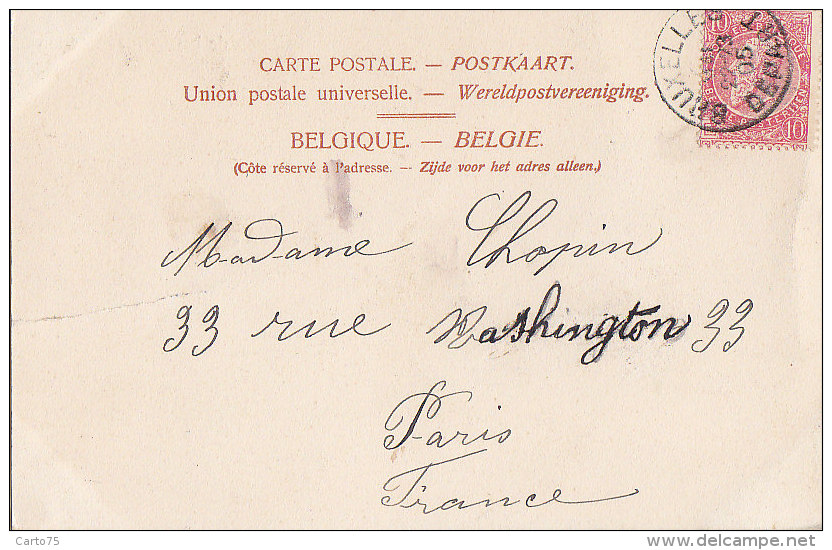 CARTE POSTALE. — POSTKAART.
Union postale universelle. — Wereldpostvereeniging.
BELGIQUE. — BELGIE.
(Côte réservé à l'adresse. — Zijde voor het adres alleen.)
BRUXELLES
DEPART
10
10
Madame Chopin
33 rue Washington 33
Paris
France
Carto75
www.delcampe.net